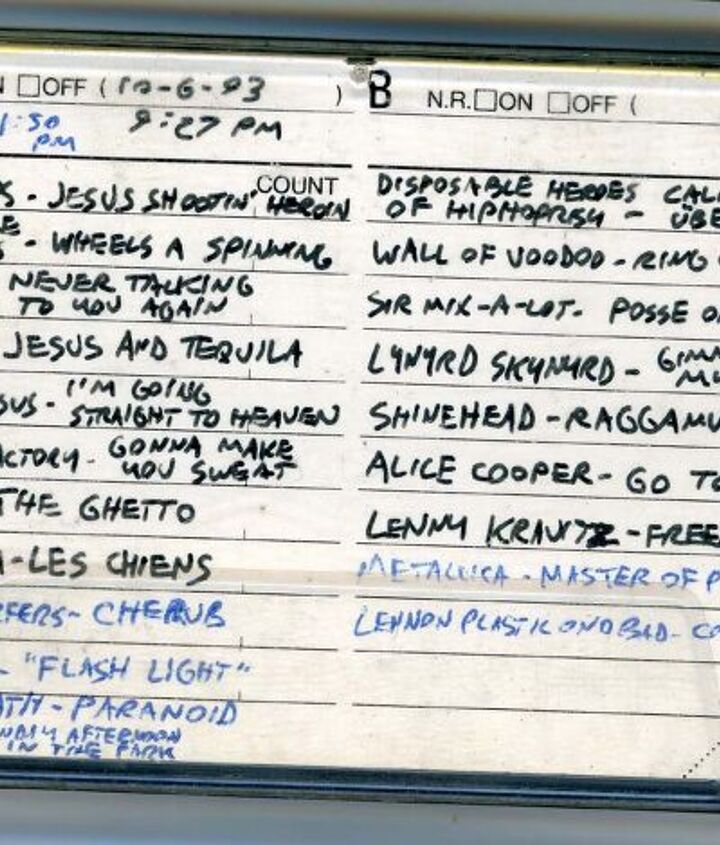 N □OFF ( 10-6-93 )
1:50 PM 9:27 PM
COUNT
S - JESUS SHOOTIN' HEROIN
E
S - WHEELS A SPINNING
NEVER TALKING
TO YOU AGAIN
JESUS AND TEQUILA
SUS - I'M GOING
STRAIGHT TO HEAVEN
ACTORY - GONNA MAKE
YOU SWEAT
THE GHETTO
A - LES CHIENS
RFERS - CHERUB
- "FLASH LIGHT"
ATH - PARANOID
NDAY AFTERNOON
IN THE PARK
B N.R. □ON □OFF (
DISPOSABLE HEROES CAL
OF HIPHOPRISY - ÜBE
WALL OF VOODOO - RING
SIR MIX-A-LOT - POSSE O
LYNYRD SKYNYRD - GIM
SHINEHEAD - RAGGAMU
ALICE COOPER - GO TO
LENNY KRAVITZ - FREE
METALLICA - MASTER OF P
LENNON PLASTIC ONO BAD - CO